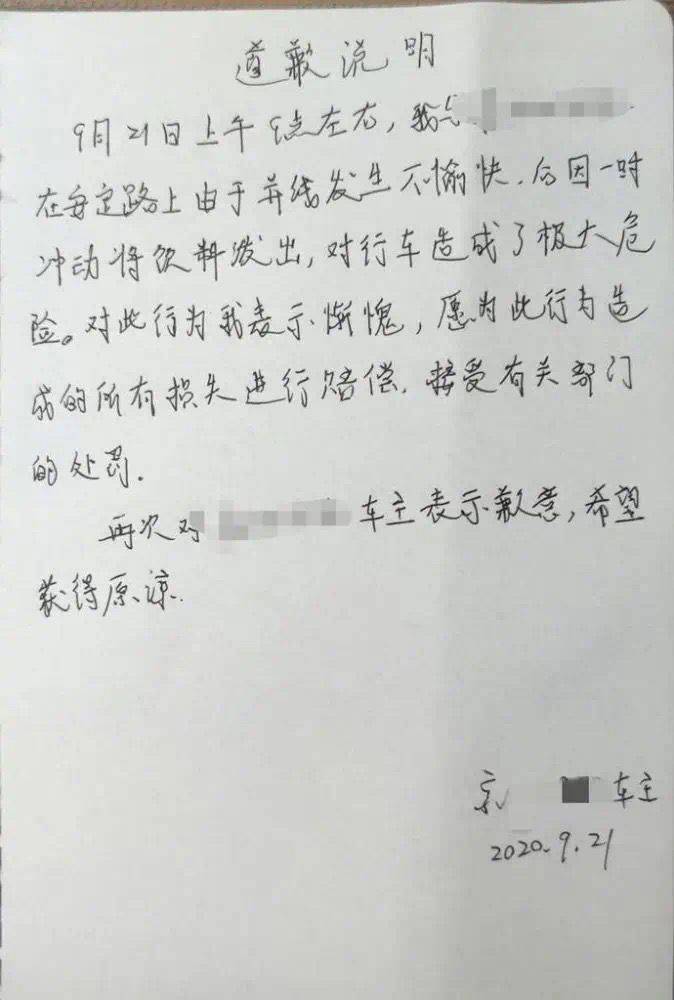 道歉说明
9月21日上午9点左右,我与
在安定路上由于并线发生不愉快.后因一时
冲动将饮料泼出,对行车造成了极大危
险。对此行为我表示惭愧,愿为此行为造
成的所有损失进行赔偿.接受有关部门
的处罚.
再次对 车主表示歉意,希望
获得原谅.
京 车主
2020.9.21